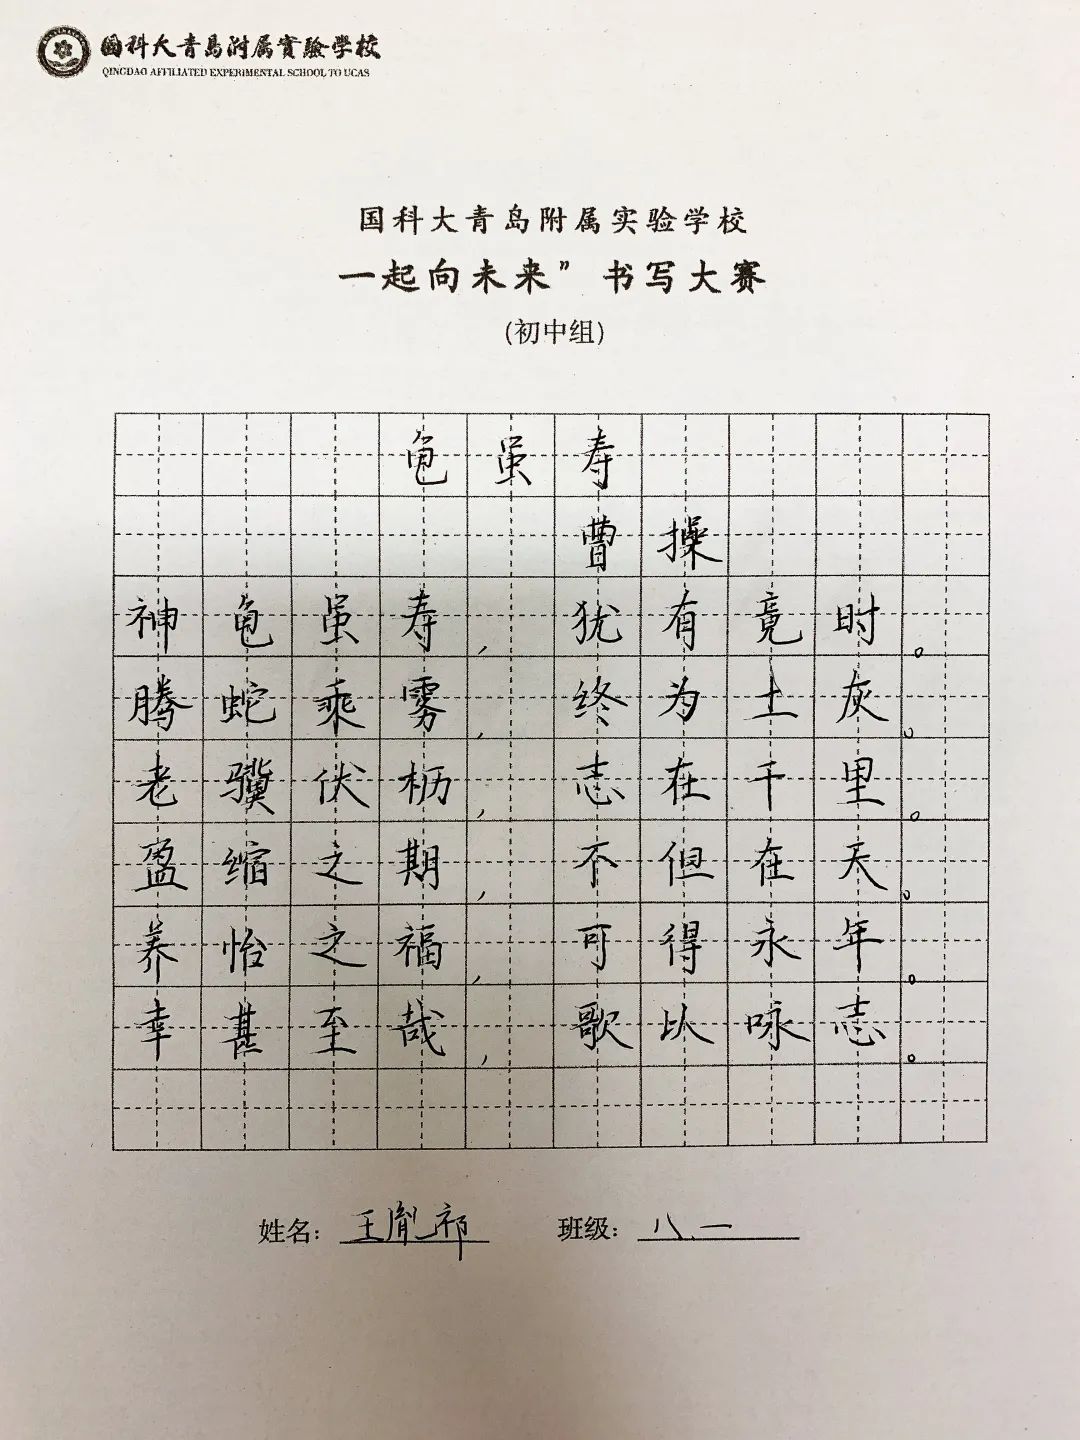 国科大青岛附属實驗学校
QINGDAO AFFILIATED EXPERIMENTAL SCHOOL TO UCAS
国科大青岛附属实验学校
一起向未来”书写大赛
(初中组)
龟虽寿
曹操
神龟虽寿,犹有竟时。
腾蛇乘雾,终为土灰。
老骥伏枥,志在千里。
盈缩之期,不但在天。
养怡之福,可得永年。
幸甚至哉,歌以咏志。
姓名:王胤祁 班级:八.一